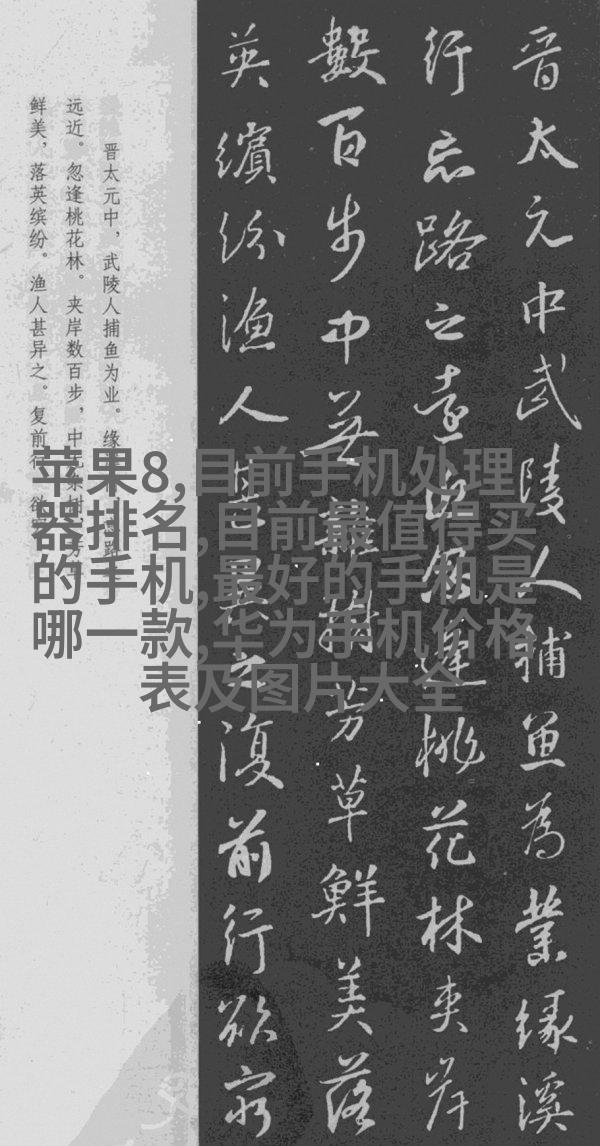 晋太元中武陵人捕魚為業緣溪
行忘路之遠近忽逢桃花林夾岸
數百步中無雜樹芳草鮮美落
英繽紛漁人甚異之復前行欲窮
晋太元中，武陵人捕鱼为业。缘
远近。忽逢桃花林。夹岸数百步，中无杂树
鲜美，落英缤纷。渔人甚异之。复前行
苹果8,目前手机处理
器排名,目前最值得买
的手机,最好的手机是
哪一款,华为手机价格
表及图片大全